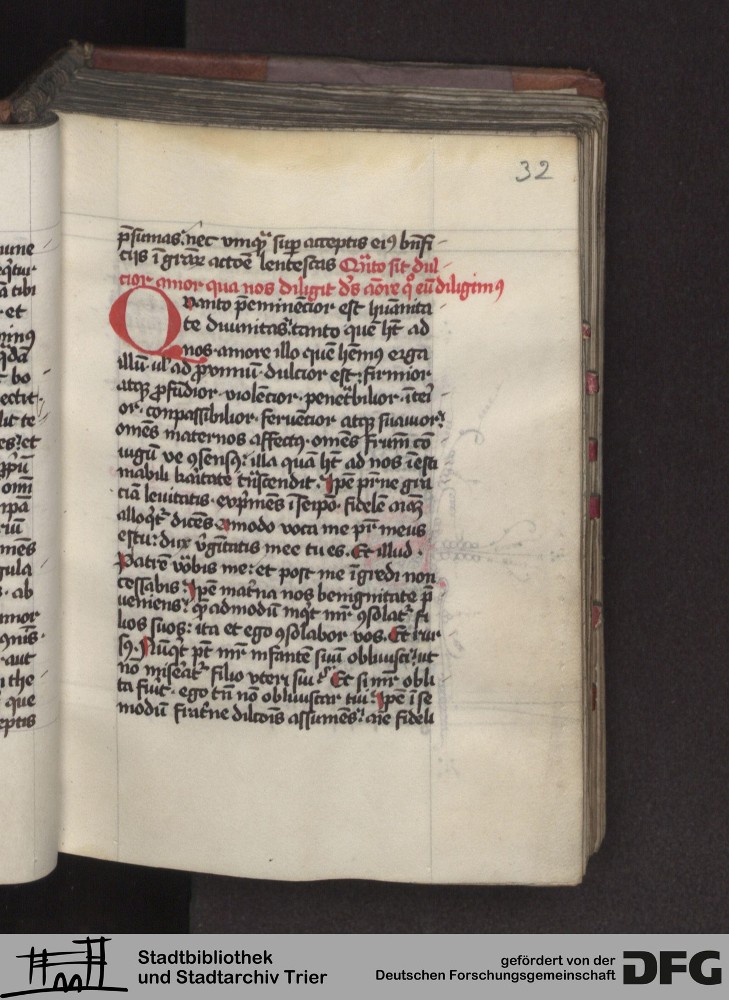 32
p̄sumas: nec vnuqꝫ suꝑ acceptis eiꝰ bn̄fi
cijs ī gr̄aꝝ actōe lentescas Qn̄to sit dul
cior amor qua nos diligit ds̄ aōre qͦ eū diligimꝰ
Qvanto p̄eminēcior est hūanita
te diuinitas: tanto quē hꝫ ad
nos amore illo quē hēmꝰ erga
illū ul' ad ꝓximū dulcior est: firmior
atqꝫ ꝓfūdior violēcior penetͣbilior īteri
or conpassibilior feruēcior atqꝫ suauior:
omēs maternos affectꝰ omēs frūm cō
iugū ve ꝯsensꝰ: illa quā hꝫ ad nos īesti
mabili kaͬitate trāscendit: Ip̄e pr̄ne gͣui
ciā leuitatis exp̄mēs ī seip̄o fidelē aīaꝫ
alloqͥtͬ dicēs amodo voca me pr̄ meus
es tu: dux vͥgītatis mee tu es. Et illud
Patrē vͦcabis me: et post me īgredi non
cessabis: Ip̄e matͬna nos benignitate p̄
ueniens: qͣ admodū īqͥt mr̄ ꝯsolatͬ fi
lios suos: ita et ego ꝯsolabor vos. Et rur
sꝰ. Nūqͥd pt̄ mr̄ infantē suū obliuisci: ut
nō misereatͬ filio vteri sui Et si mr̄ obli
ta fuit ego tn̄ nō obliuiscar tui: Ip̄e ī se
modū frat̄ne dilcōis assumēs: aīe fideli
Stadtbibliothek
und Stadtarchiv Trier
gefördert von der
Deutschen Forschungsgemeinschaft
DFG